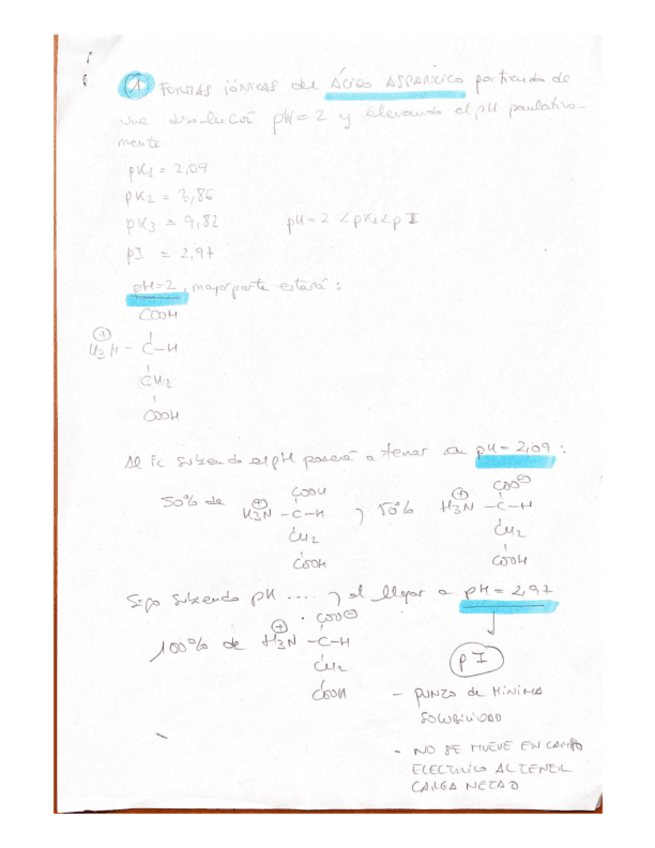 ① FORMAS IÓNICAS del ÁCIDO ASPÁRTICO partiendo de
una disolución pH = 2 y elevando el pH paulativa-
mente
pK1 = 2,09
pK2 = 3,86
pK3 = 9,82 pH = 2 < pK1 < pI
pI = 2,97
pH = 2, mayor parte estará:
COOH
⊕
H3N - C - H
CH2
COOH
Al ir subiendo el pH pasará a tener a pH = 2,09:
50% de ⊕ H3N - C - H y 50% ⊕ H3N - C - H
COOH COO⊖
CH2 CH2
COOH COOH
Sigo subiendo pH .... y al llegar a pH = 2,97
100% de ⊕ H3N - C - H
COO⊖
CH2
COOH
pI
- PUNTO de MÍNIMA
SOLUBILIDAD
- NO SE MUEVE EN CAMPO
ELECTRICO AL TENER
CARGA NETA 0